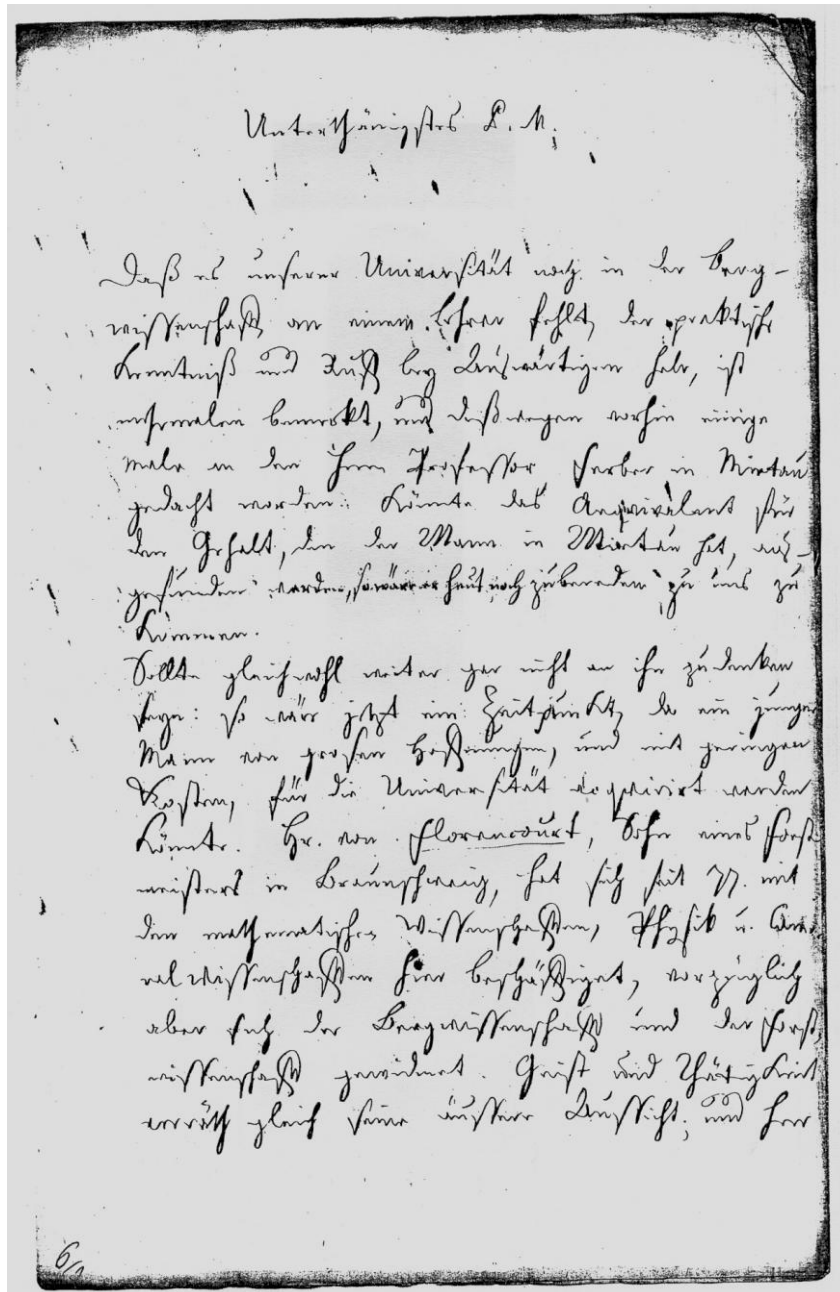 Unterthänigstes P. M.
Daß es unserer Universität noch in der Berg-
wissenschaft an einem Lehrer fehlt, der praktische
Kenntniß und Ruff bey Auswärtigen habe, ist
mehrmalen bemerkt, und deßwegen vorhin einige
male an den Herrn Professor Ferber in Mietau
gedacht worden. Könnte das Aequivalent für
den Gehalt, den der Mann in Mietau hat, aus-
gefunden werden, so wäre er heut noch zubereden zu uns zu
kommen.
Sollte gleichwohl weiter gar nicht an ihn zudenken
seyn: so wäre jetzt ein Zeitpunkt, da ein junger
Mann von grosen Hoffnungen, und mit geringen
Kosten, für die Universität acquirirt werden
könnte. Hr. von Florencourt, Sohn eines Forst-
meisters in Braunschweig, hat sich seit 77. mit
den mathematischen Wissenschafften, Physik u. Came-
ralwissenschafften hier beschäfftiget, vorzüglich
aber sich der Bergwissenschafft und der Forst-
wissenschafft gewidmet. Geist und Thätigkeit
verräth gleich seine äussere Aussicht; und Herr
6/1